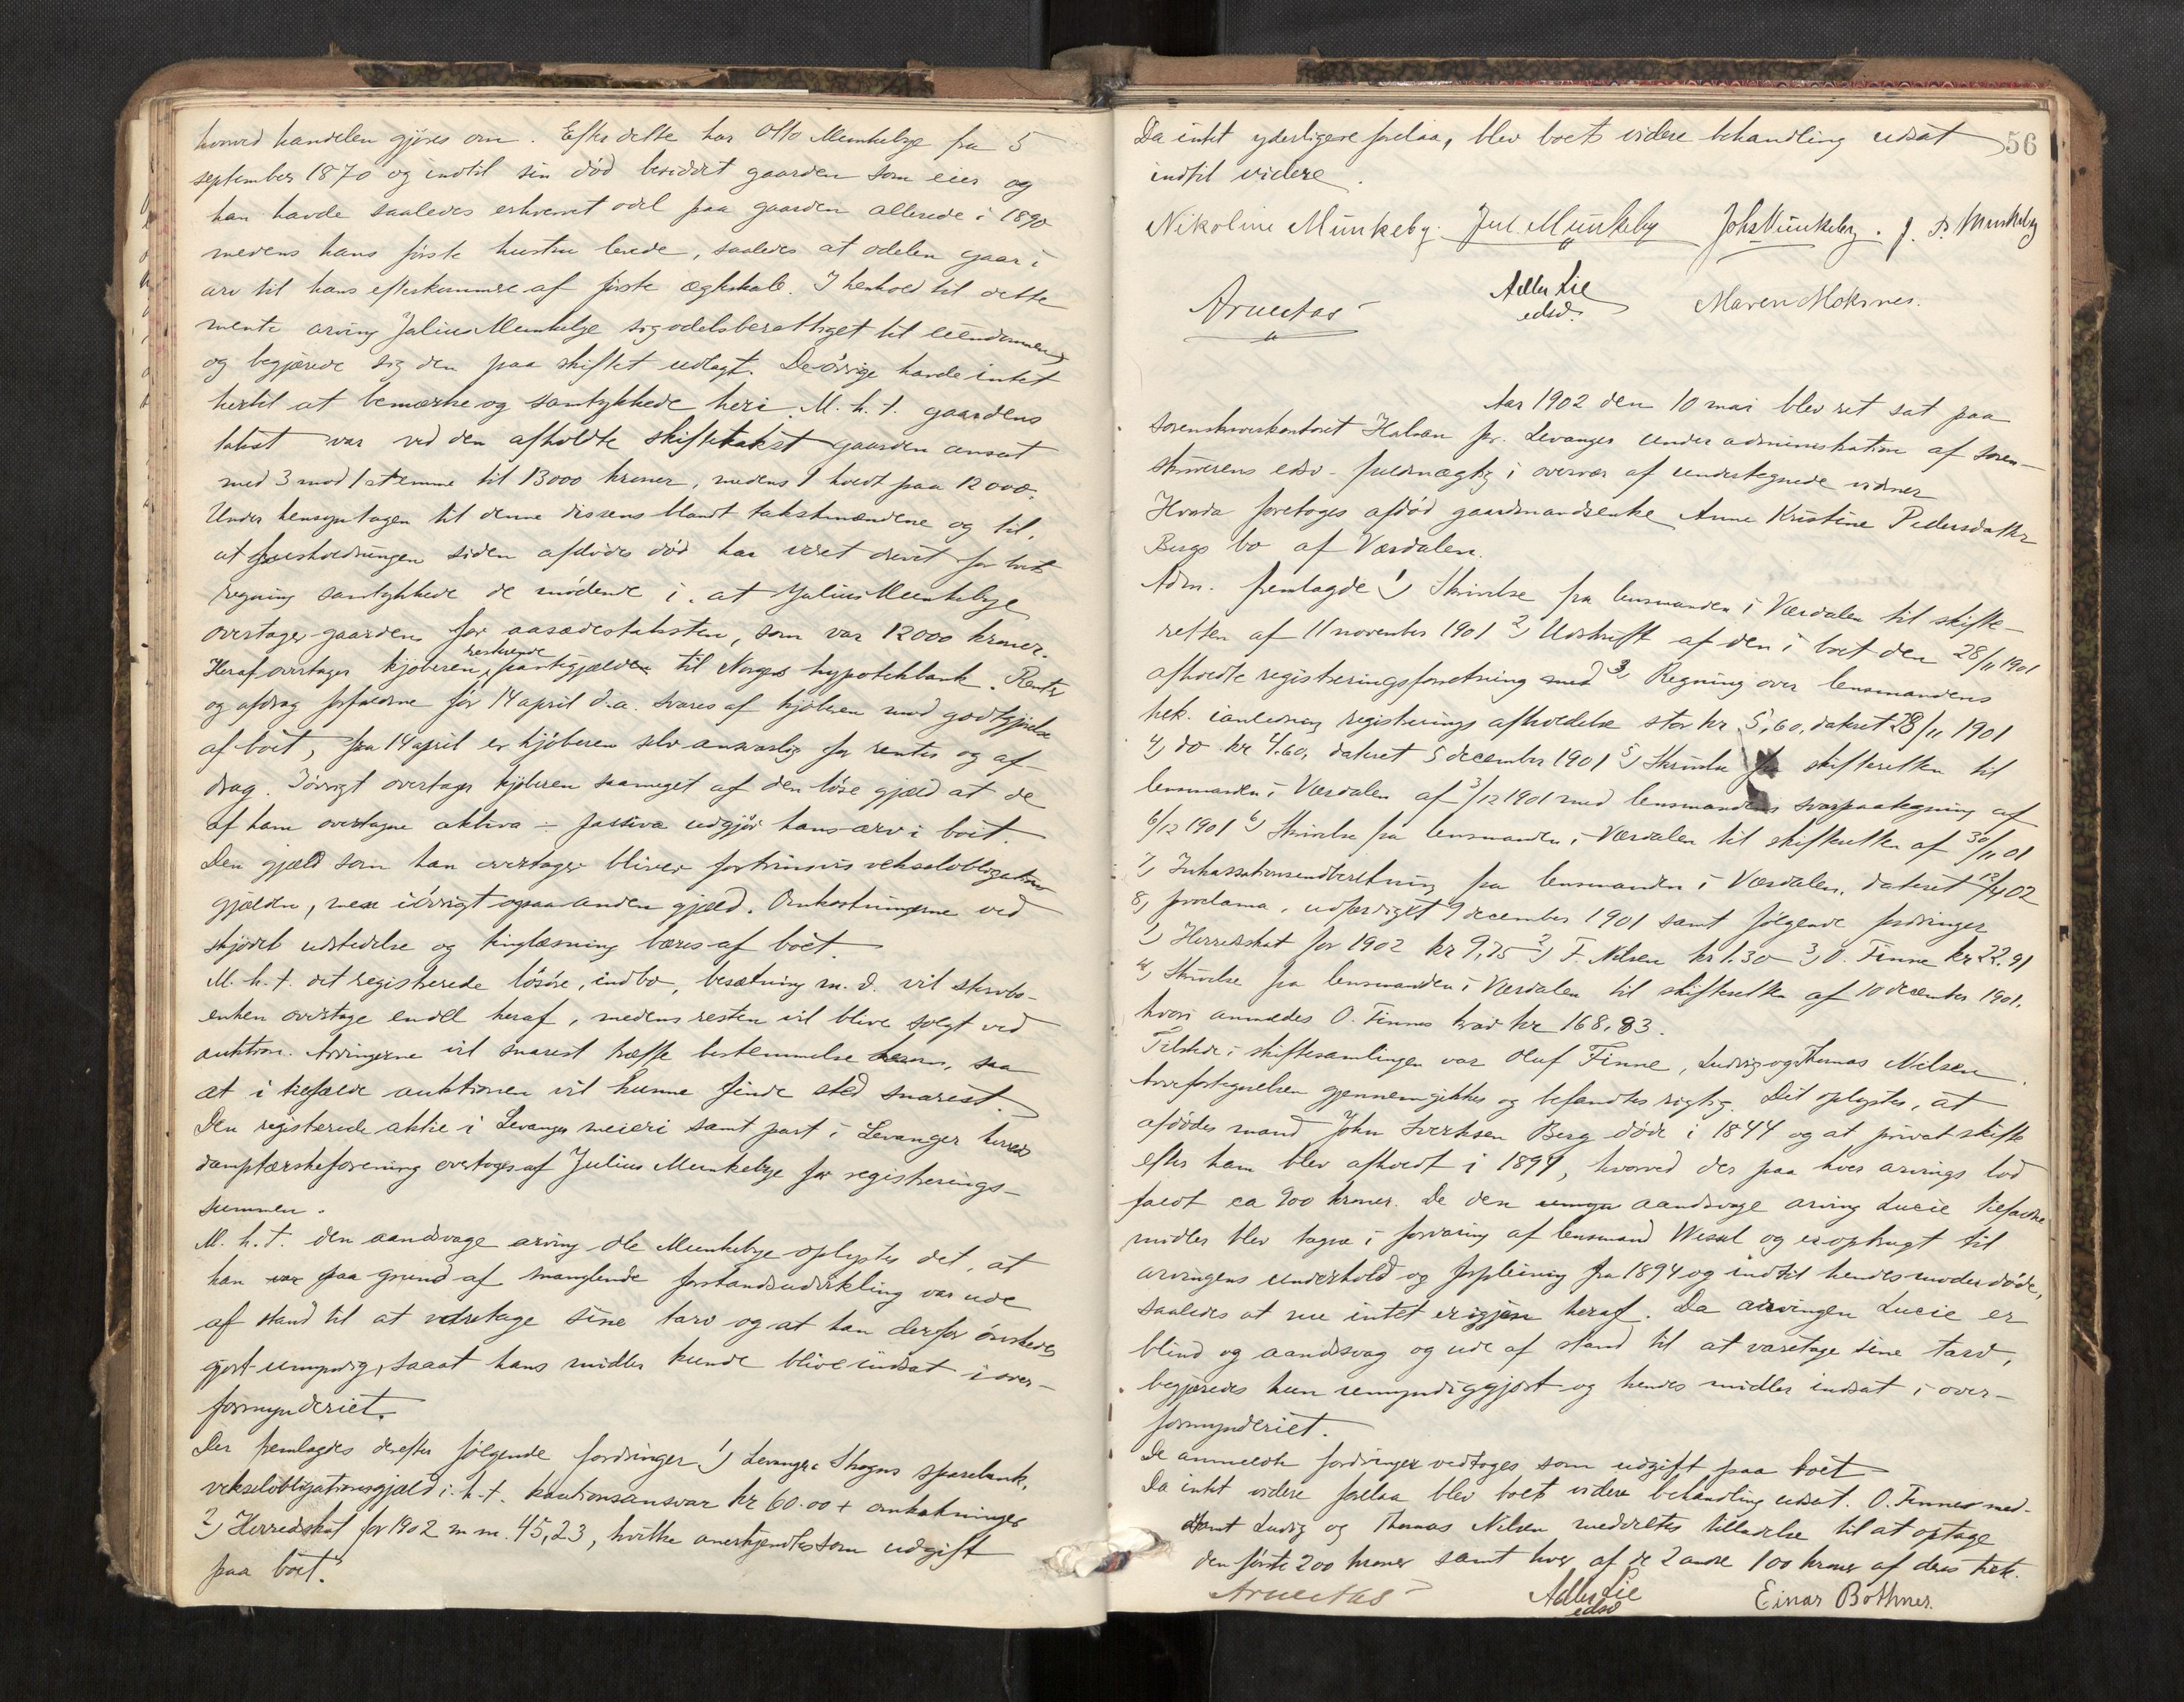 hvorved handelen gjøres om. Efter dette har Otto Munkebye fra 5
september 1870 og indtil sin død besiddet gaarden som eier og
han havde saaledes erhvervet odel paa gaarden allerede i 1890
medens hans første hustru levede, saaledes at odelen gaar i
arv til hans efterkommere af første ægteskab. I henhold til dette
mente arving Julius Munkebye sig odelsberettiget til eiendommen
og begjærede sig den paa skiftet udlagt. De øvrige havde intet
hertil at bemærke og samtykkede heri. M. h. t. gaardens
takst var ved den afholdte skiftetakst gaarden ansat
med 3 mod 1 stemme til 13000 kroner, medens 1 holdt paa 12000.
Under hensyntagen til denne dissens blandt takstmændene og til,
at husholdningen siden afdødes død har været drevet for boets
regning samtykkede de mødende i, at Julius Munkebye
overtager gaarden for aasædestaksten, som var 12000 kroner.
Heraf overtager kjøberen restende pantegjælden til Norges hypothekbank. Renter
og afdrag forfaldne før 14 april d.a. svares af kjøberen mod godtgjørelse
af boet, fra 14 april er kjøberen selv ansvarlig for renter og af-
drag. Iøvrigt overtager kjøberen saameget af den løse gjæld at de
af ham overtagne aktiva ÷ passiva udgjør hans arv i boet.
Den gjæld som han overtager bliver fortrinsvis vekselobligations
gjælden, men iøvrigt ogsaa anden gjæld. Omkostningerne ved
skjødets udstedelse og tinglæsning bæres af boet.
M. h. t. det registrerede løsøre, indbo, besætning m. v. vil skifts-
enken overtage endel heraf, medens resten vil blive solgt ved
auktion. Arvingerne vil snarest træffe bestemmelse herom, saa
at i tilfælde auktionen vil kunne finde sted snarest.
Den registrerede aktie i Levanger meieri samt part i Levanger herreds
damptærskeforening overtoges af Julius Munkebye for registrerings-
summen.
M. h. t. den aandsvage arving Ole Munkebye oplystes det, at
han var paa grund af manglende forstandsudvikling var ude
af stand til at varetage sine tarv og at han derfor ønskedes
gjort umyndig, saaat hans midler kunde blive indsat i over-
formynderiet.
Der fremlagdes derefter følgende fordringer 1) Levanger Skogns sparebank,
vekselobligationsgjæld i. h. t. kautionsansvar kr 60.00 + omkostninger
2) Herredskat for 1902 m m. 45,23, hvilke anerkjendtes som udgift
paa boet.
56
Da intet yderligere forelaa, blev boets videre behandling udsat
indtil videre.
Nikoline Munkeby. Jul. Munkeby Johs Munkeby. J. P. Munkeby
Arnestas Adler Lie Maren Moksnes.
edsv.
Aar 1902 den 10 mai blev ret sat paa
sorenskriverkontoret Halsan pr. Levanger under administration af soren-
skriverens edsv. fuldmægtig i overvær af undertegnede vidner
Hvorda foretoges afdød gaardmandsenke Anne Kristine Pedersdatter
Bergs bo af Værdalen.
Adm. fremlagde 1) Skrivelse fra lensmanden i Værdalen til skifte-
retten af 11 november 1901 2) Udskrift af den i boet den 28/11 1901
afholdte registreringsforretning med 3) Regning over lensmandens
tilk. i anledning registrerings afholdelse stor kr 5,60, dateret 28/11 1901
4) do kr 4.60, dateret 5 december 1901 5) Skrivelse fra skifteretten til
lensmanden i Værdalen af 3/12 1901 med lensmandens svarpaategning af
6/12 1901 6) Skrivelse fra lensmanden i Værdalen til skifteretten af 30/11 01
7) Inkassationsindberetning fra lensmanden i Værdalen, dateret 12/4 02
8) proclama, udfærdiget 9 december 1901 samt følgende fordringer
1) Herredskat for 1902 kr 9,75 2) F. Nilsen kr 1.30 3) O. Finne kr 22.91
4) Skrivelse fra lensmanden i Værdalen til skifteretten af 10 december 1901,
hvori anmeldes O. Finnes krav kr 168,83.
Tilstede i skiftesamlingen var Oluf Finne, Ludvig og Thomas Nilsen.
Arvefortegnelsen gjennemgikkes og befandtes rigtig. Det oplystes, at
afdødes mand John Sverksen Berg døde i 1844 og at privat skifte
efter ham blev afholdt i 1894, hvorved der paa hver arvings lod
faldt ca 900 kroner. De den aandsvage arving Lucie tilfaldne
midler blev tagne i forvaring af lensmand Wessel og er opbrugt til
arvingens underhold og forpleining fra 1894 og indtil hendes moder døde,
saaledes at nu intet er igjen heraf. Da arvingen Lucie er
blind og aandssvag og ude af stand til at varetage sine tarv,
begjæredes hun umyndiggjort og hendes midler indsat i over-
formynderiet.
De anmeldte fordringer vedtoges som udgift paa boet
Da intet videre forelaa blev boets videre behandling udsat. O. Finnes med-
samt Ludvig og Thomas Nilsen meddeltes tilladelse til at optage
den første 200 kroner samt hver af de 2 andre 100 kroner af deres tilk.
Arnestas Adler Lie Einar Bothner.
edsv